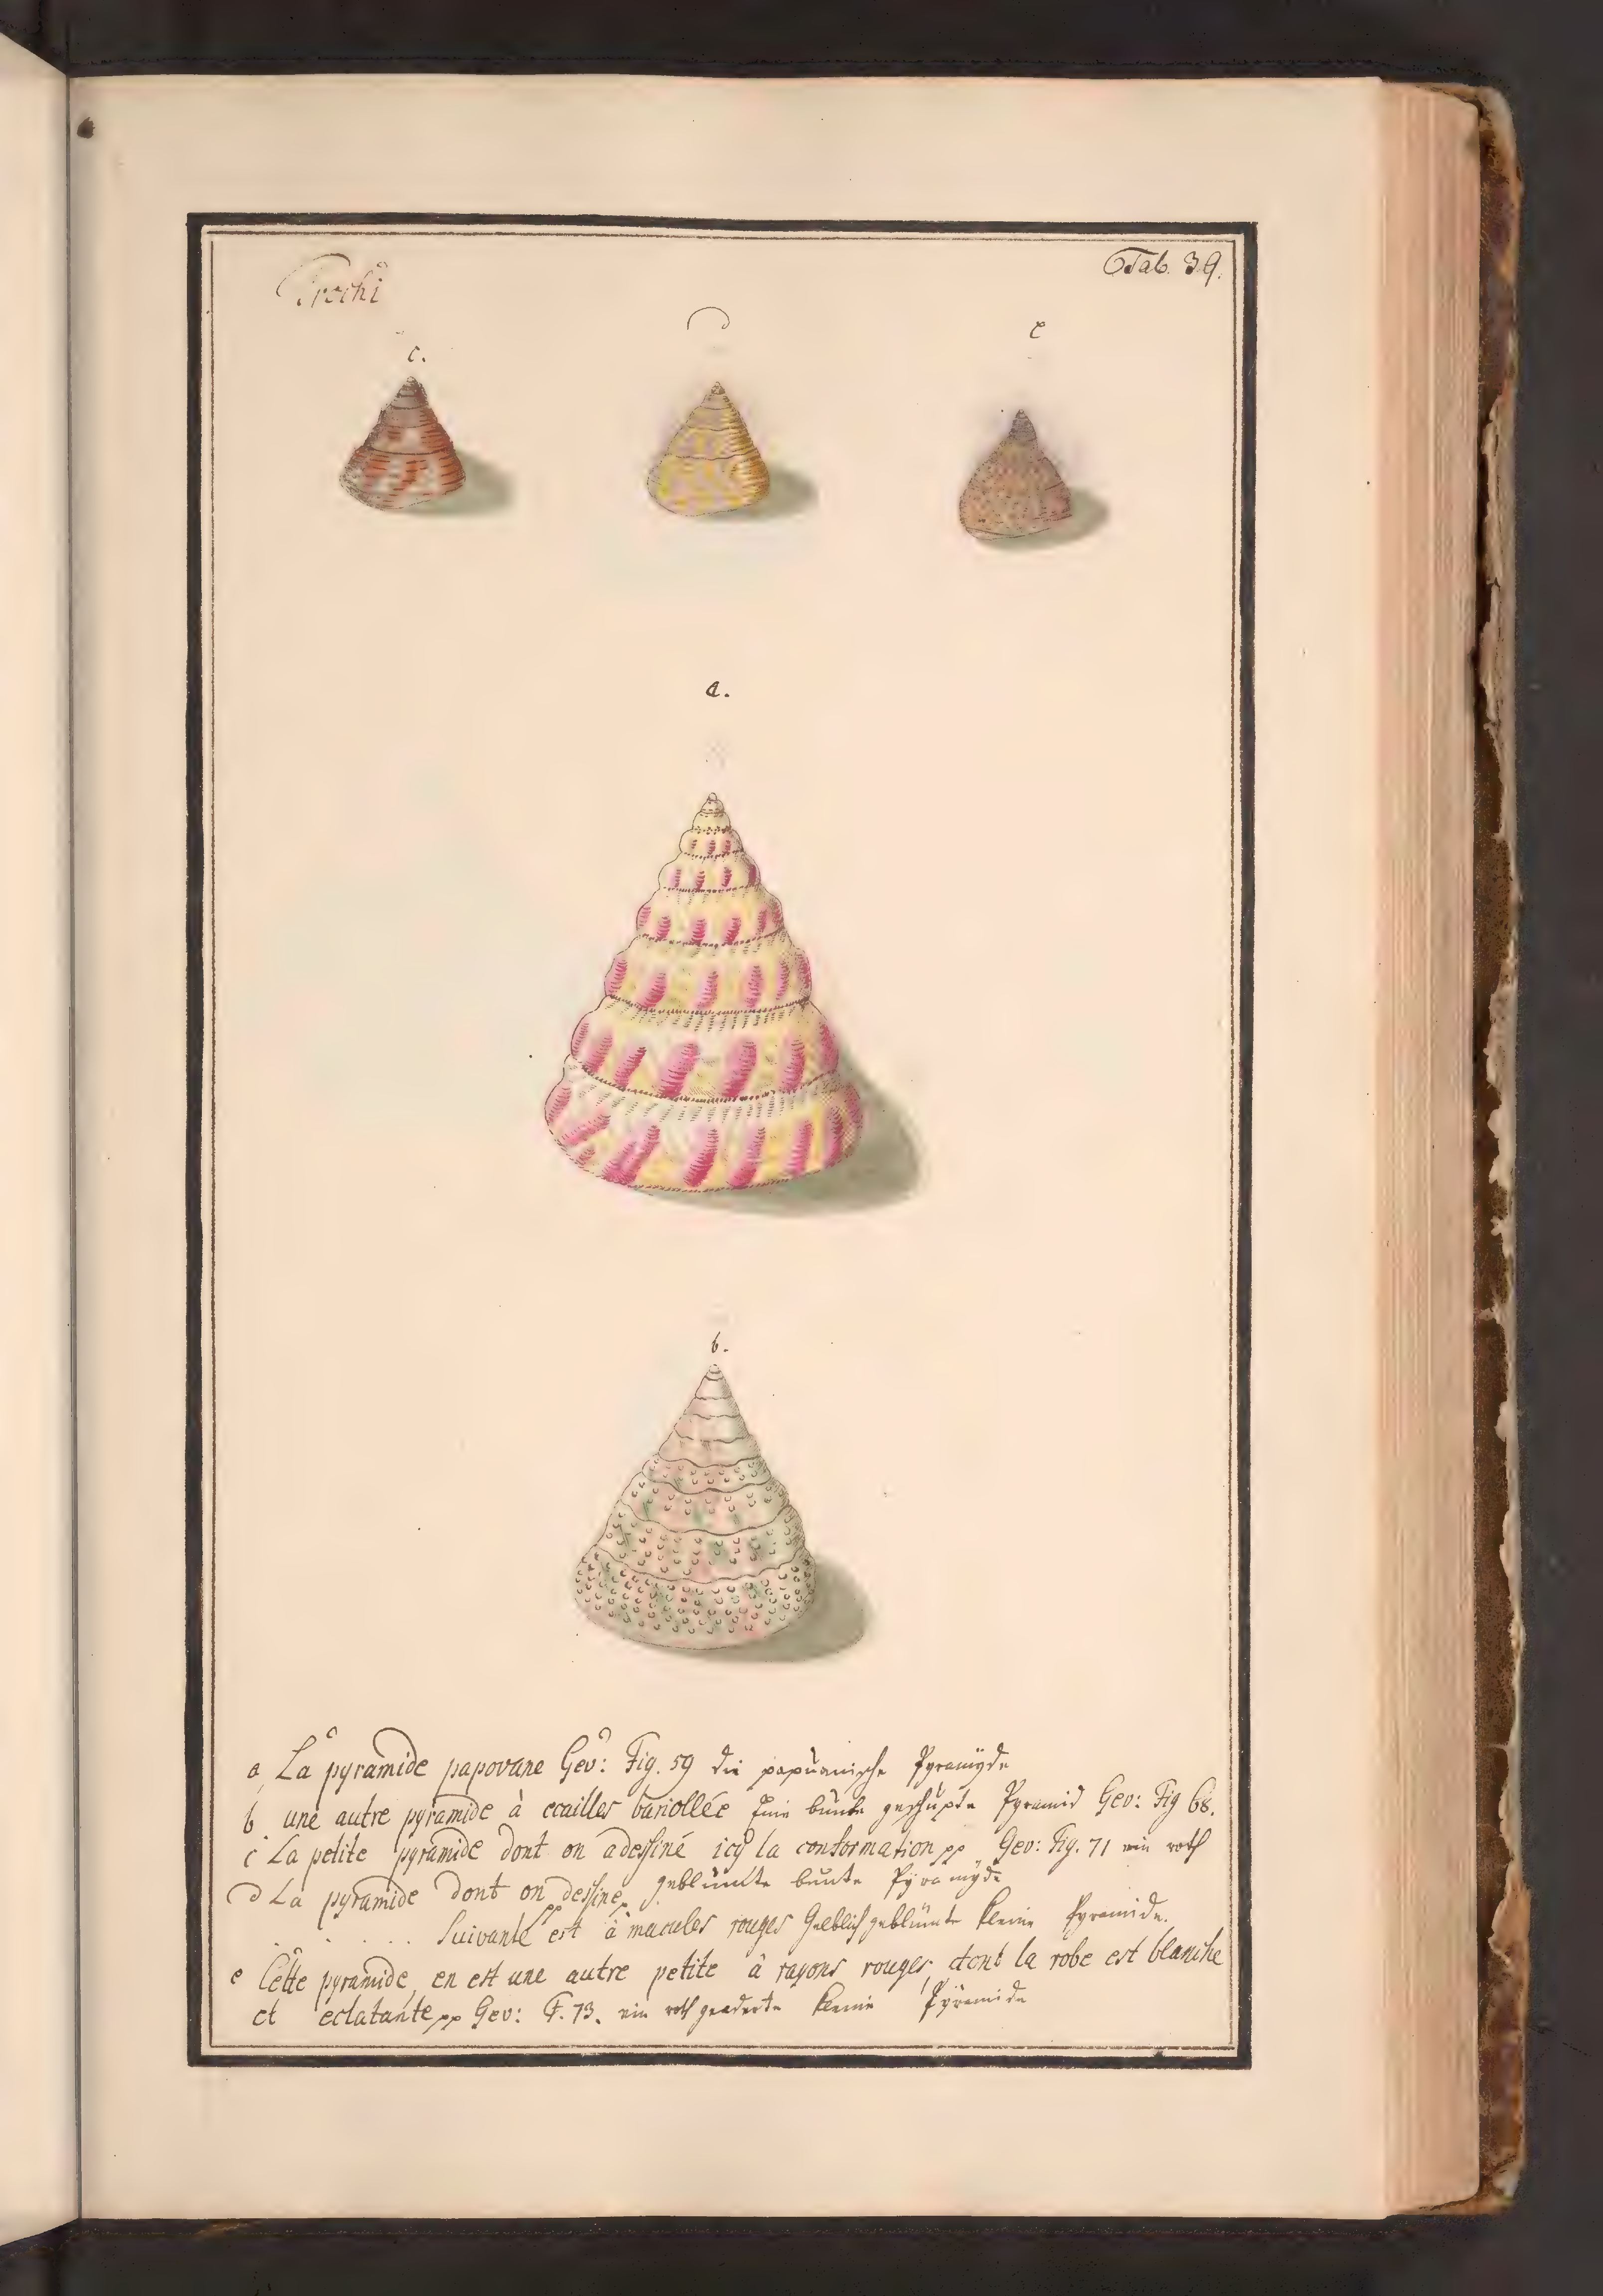 Trochi
Tab. 39.
c.
e
a.
b.
a La pyramide papovane Gev: Fig. 59 die papuanische Pyramyde
b une autre pyramide à ecailles bariollée Eine bunte geschupte Pyramid Gev: Fig 68.
c La petite pyramide dont on a dessiné icy la conformation pp Gev: Fig. 71 ein roth
geblümte bunte Pyramyde
d La pyramide dont on dessine pp
. . . . . Suivante est à macules rouges Gelblich geblümte kleine Pyramide.
e Cette pyramide, en est une autre petite à rayons rouges, dont la robe est blanche
et eclatante pp Gev: F. 73. ein roth geaderte kleine Pyramide